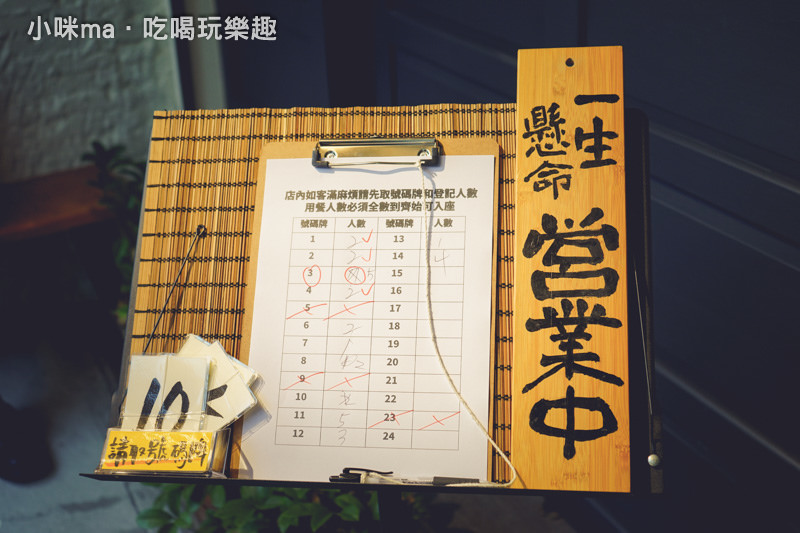 小咪ma・吃喝玩樂趣
一生
懸命
営業中
店內如客滿麻煩請先取號碼牌和登記人數
用餐人數必須全數到齊始可入座
號碼牌 人數 號碼牌 人數
1 2 13 1
2 3 14 4
3 5 15
4 2 16
5 17
6 2 18
7 1 19
8 2 20
9 21
10 22
11 5 23
12 3 24
10
請取號碼牌